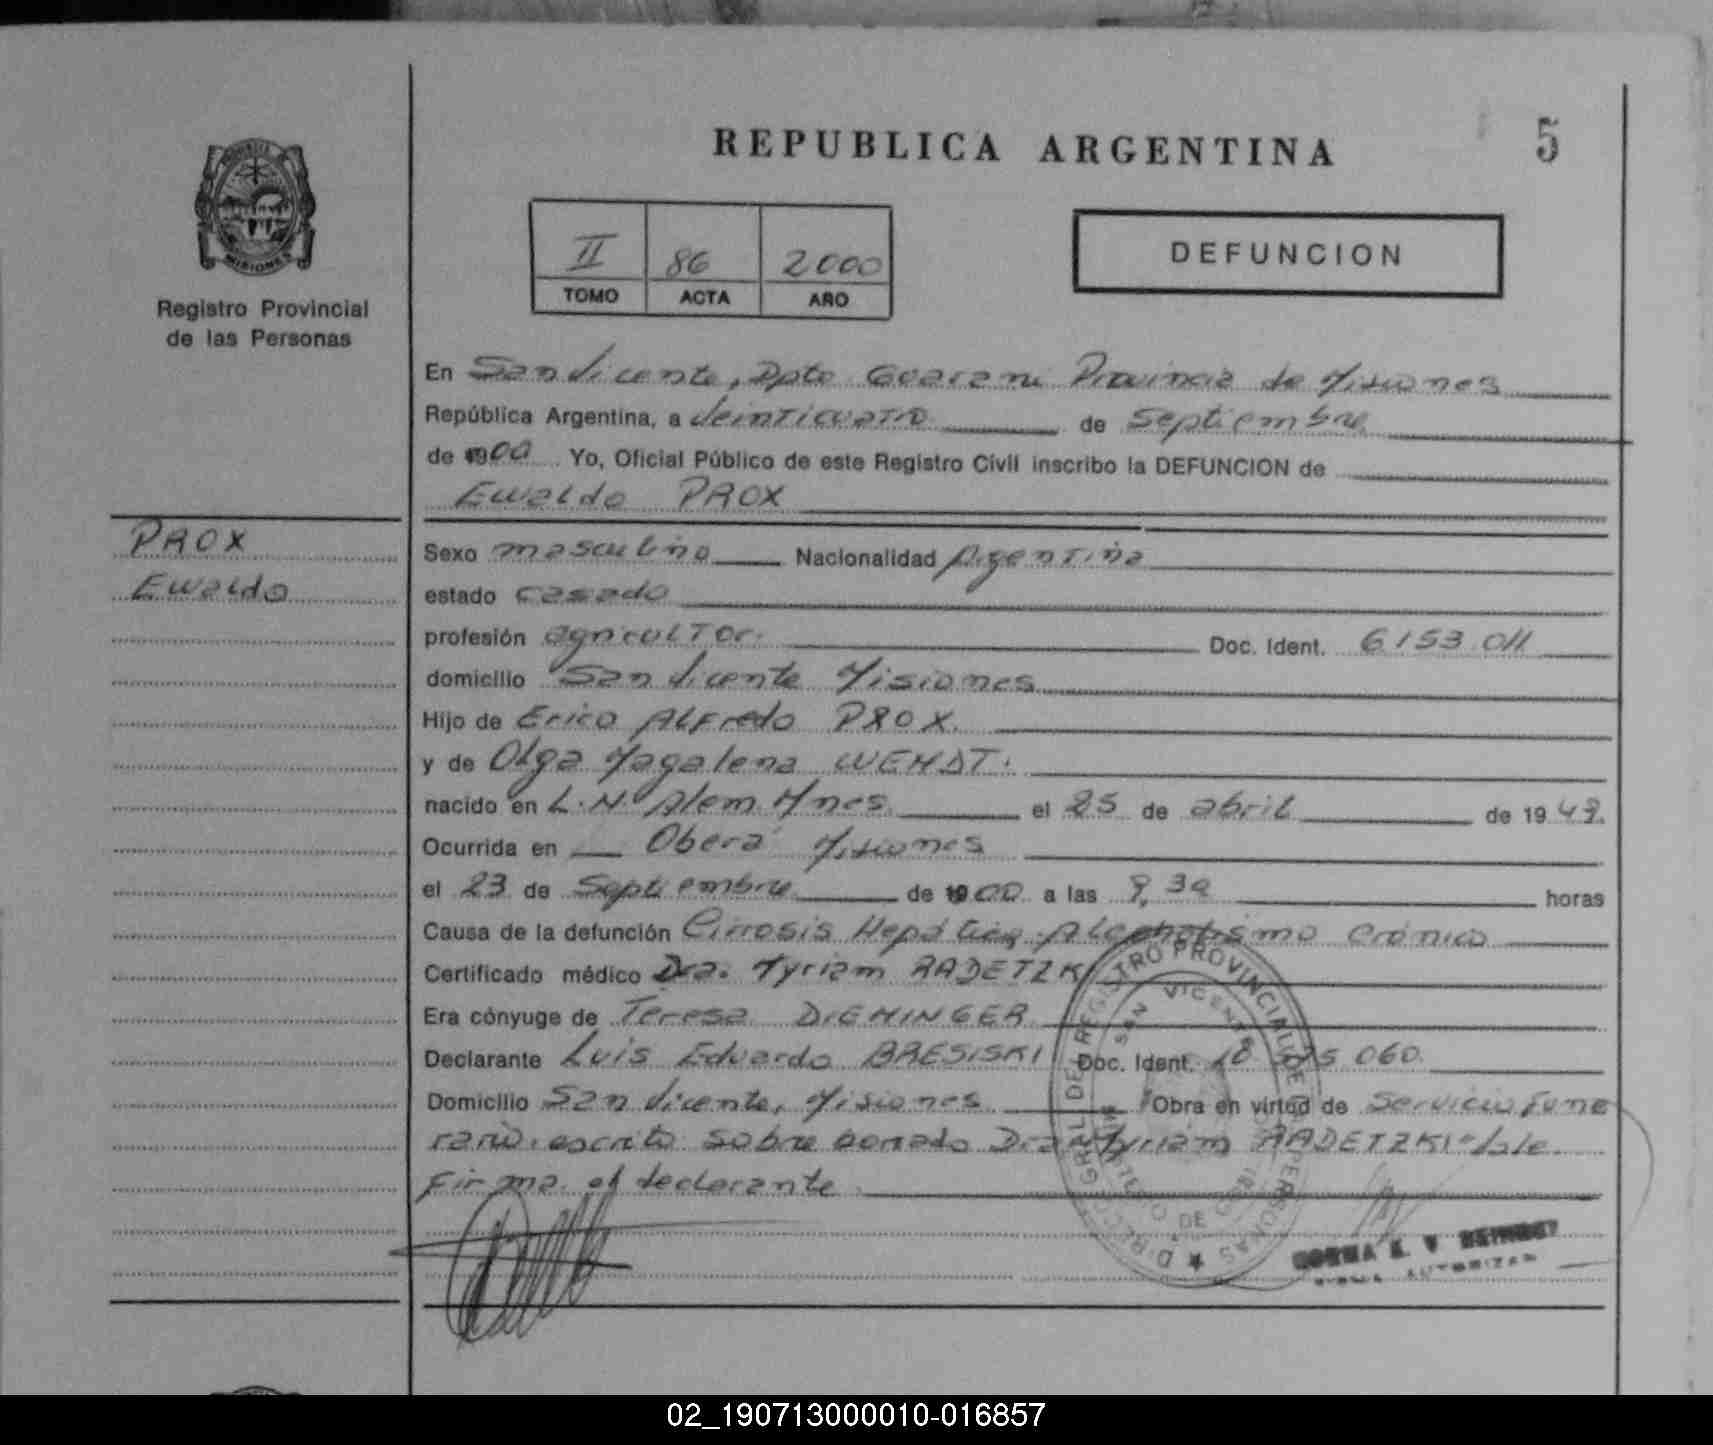 REPUBLICA ARGENTINA
5
PROVINCIA DE
MISIONES
Registro Provincial
de las Personas
II 86 2000
TOMO ACTA AÑO
DEFUNCION
En San Vicente, Dpto Guarani Provincia de Misiones
República Argentina, a Veinticuatro de Septiembre
de 1900 Yo, Oficial Público de este Registro Civil inscribo la DEFUNCION de
Ewaldo PROX
PROX
Ewaldo
Sexo masculino Nacionalidad Argentina
estado casado
profesión agricultor. Doc. Ident. 6153.011
domicilio San Vicente Misiones
Hijo de Erico Alfredo PROX.
y de Olga Magalena WENDT.
nacido en L.N. Alem. Mnes. el 25 de abril de 19
Ocurrida en Oberá Misiones
el 23 de Septiembre de 1900 a las horas
Causa de la defunción Cirrosis Hepática Alcoholismo Crónico
Certificado médico Dra. Myriam RADETZKI
Era cónyuge de Teresa DIEMINGER
Declarante Luis Eduardo BRESISKI Doc. Ident. 060.
Domicilio San Vicente, Misiones Obra en virtud de Servicio Fune
rario. escrito sobre borrado Dra Myriam RADETZKI Vale
Firma el declarante
DIRECC. GRAL. DEL REGISTRO PROVINCIAL DE LAS PERSONAS
SAN VICENTE
NORMA
FIRMA AUTORIZADA
02_190713000010-016857